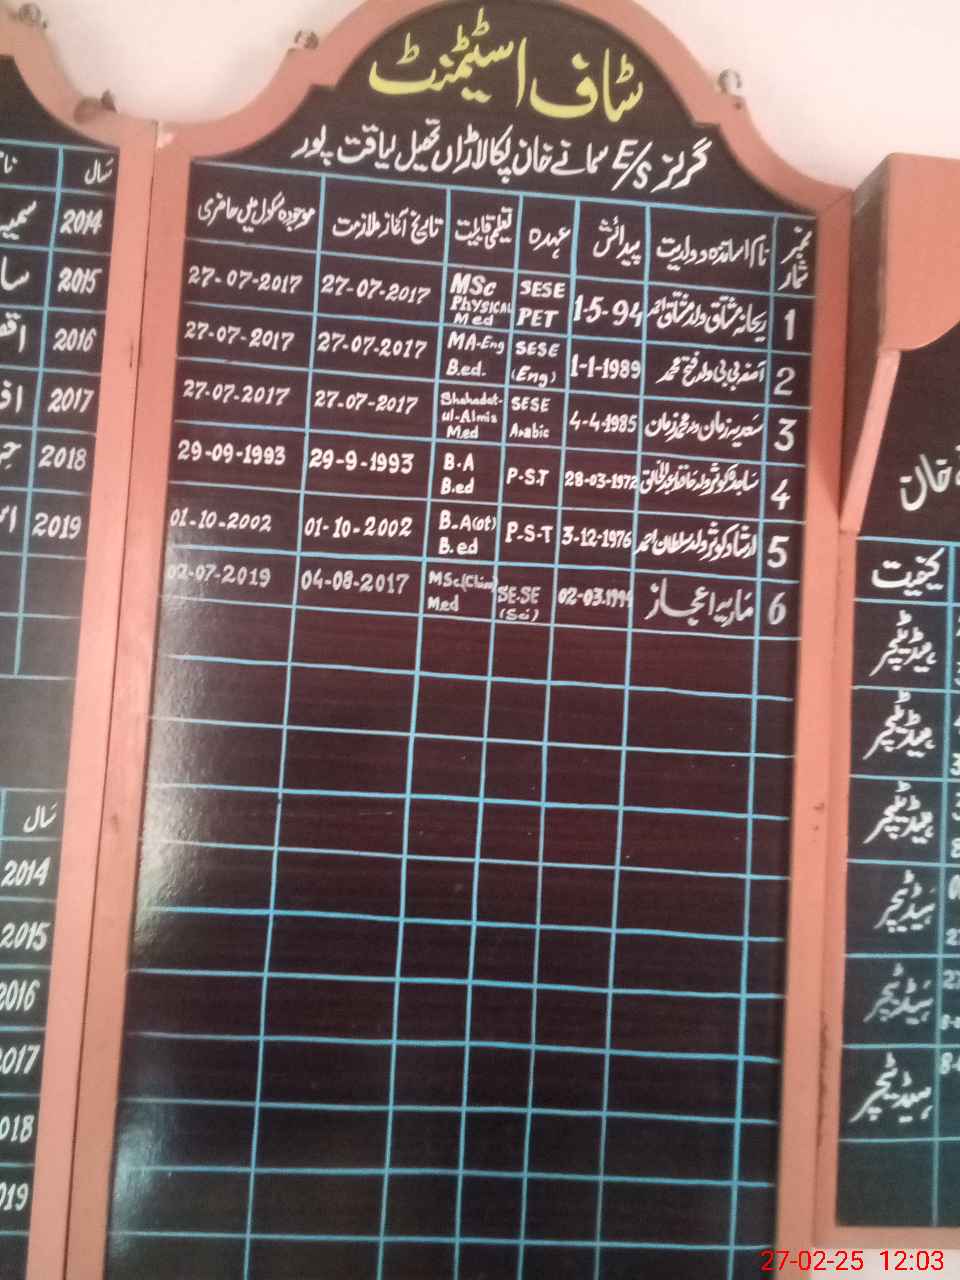 سٹاف اسٹیٹمنٹ
گرلز E/S سمانے خان پکالاڑاں تحصیل لیاقت پور
نمبر شمار نام اساتذہ و ولدیت پیدائش عہدہ تعلیمی قابلیت تاریخ آغاز ملازمت موجودہ سکول میں حاضری
1 ریحانہ مشتاق ولد مشتاق احمد 1-5-94 SESE PET MSc Physical Med 27-07-2017 27-07-2017
2 آصفہ بی بی ولد فتح محمد 1-1-1989 SESE (Eng) MA-Eng B.ed. 27-07-2017 27-07-2017
3 سعدیہ زمان ولد محمد زمان 4-4-1985 SESE Arabic Shahadat-ul-Almia Med 27-07-2017 27-07-2017
4 ساجدہ کوثر ولد حافظ عبدالخالق 28-03-1972 P.S.T B.A B.ed 29-9-1993 29-09-1993
5 ارشاد کوثر ولد سلطان احمد 3-12-1976 P-S-T B.A B.ed 01-10-2002 01-10-2002
6 ماریہ اعجاز 02-03. SE-SE (Sci) MSc Med 04-08-2017 02-07-2019
سال
2014
2015
2016
2017
2018
2019
سال
2014
2015
2016
2017
2018
2019
خان
کیفیت
ہیڈ ٹیچر
ہیڈ ٹیچر
ہیڈ ٹیچر
ہیڈ ٹیچر
ہیڈ ٹیچر
ہیڈ ٹیچر
27-02-25 12:03